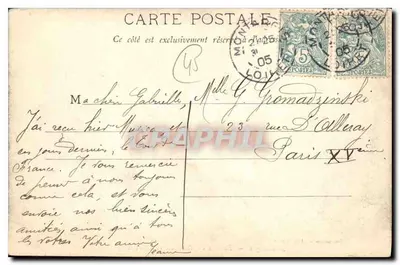 CARTE POSTALE
Ce côté est exclusivement réservé à l'adresse
45
MONTARGIS
25
05
LOIRET
5
MONTARGIS
05
LOIRET
Ma chère Gabrielle,
J'ai reçu hier
ces jours derniers, le tout
France. Je vous remercie
de penser à nous toujours
comme cela, et vous
envoie nos bien sincères
amitiés, ainsi qu'à tous
les vôtres. Votre amie
Jeanne
Melle G. Gromadzinski
23 rue D'Alleray
Paris XV ème
CARTHAPHILE